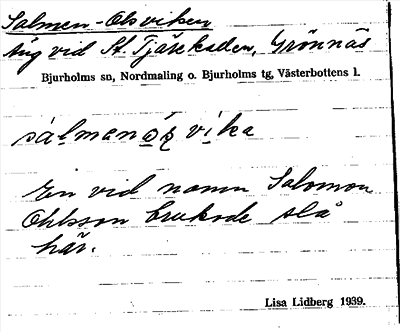 Salmen-Olsviken
vid St. Tjäru­kaden, Grönnäs
Bjurholms sn, Nordmaling o. Bjurholms tg, Västerbottens l.
sálmenòsvika
En vid namn Salomon
Ohlsson brukade slå
här.
Lisa Lidberg 1939.